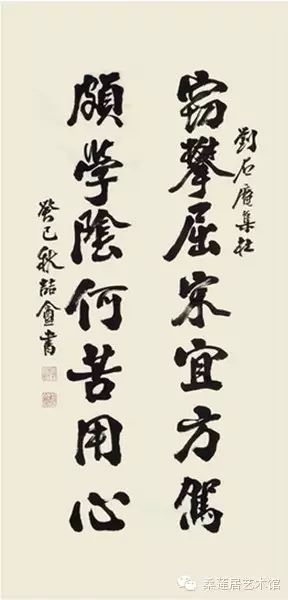 劉石庵集杜
窃攀屈宋宜方駕
頗學陰何苦用心
癸巳秋喆盦書
桑莲居艺术馆